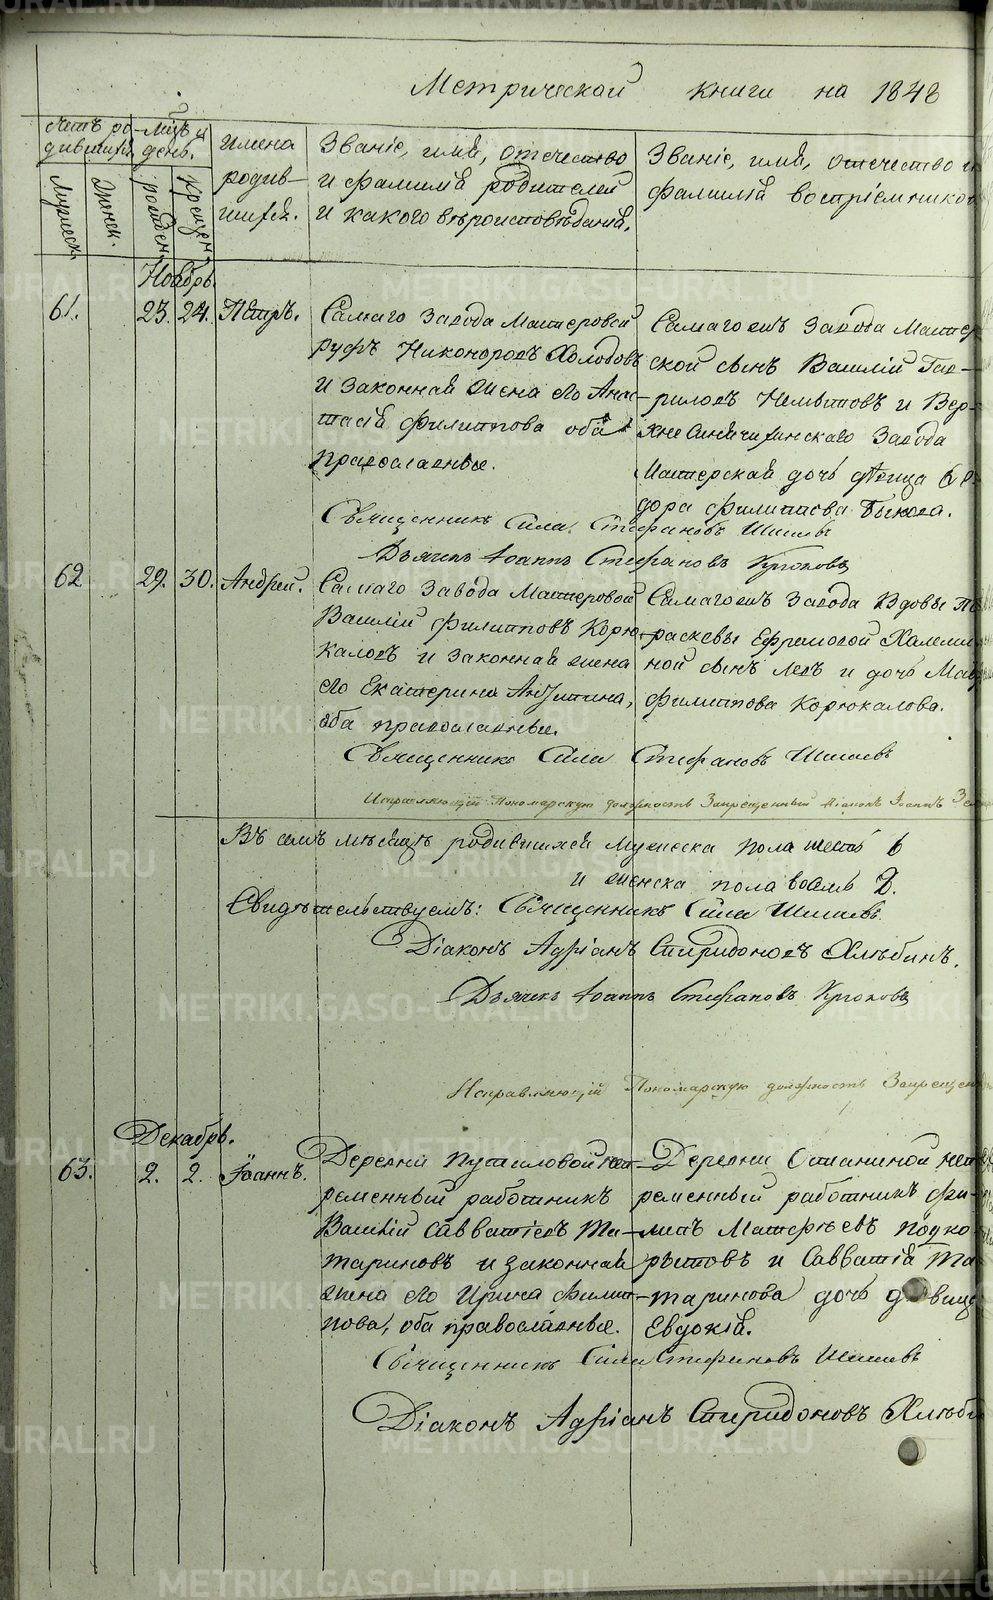 Метрической книги на 1848
Счетъ ро-
дившихся
Мужеск.
Женск.
Мѣцъ и
день.
рожден.
крещен.
Имена
родив-
шихся.
Званіе, имя, отечество
и фамилія родителей
и какого вѣроисповѣданія.
Званіе, имя, отечество и
фамилія воспріемников
Ноябрь.
61.
23.
24.
Петръ.
Самаго завода Мастеровой
Руфъ Никоноровъ Холодовъ
и законная жена его Анас-
тасія Филиппова оба
православные.
Самаго сихъ завода Мастер
ской сынъ Василій Гав-
риловъ и Вер-
хне Синячихинскаго завода
Мастерская дочь дѣвица
дора Филиппова
Священникъ Сила Стефановъ Шишевъ
Дьячекъ Іоаннъ Стефановъ Крюковъ
62
29.
30.
Андрей.
Самаго завода Мастеровой
Василій Филипповъ Корю-
каловъ и законная жена
его Екатерина
оба православные.
Самаго сихъ завода вдовы Па
раскевы Ефремовой
ной сынъ Левъ и дочь
Филиппова Корюкалова.
Священникъ Сила Стефановъ Шишевъ
Исправляющій Пономарскую должность Запрещенный діаконъ Іоаннъ
Въ семъ мѣсяцѣ родившихся мужеска пола шесть 6
и женска пола восемь
Свидѣтельствуемъ: Священникъ Сила Шишевъ
Діаконъ Адріанъ Спиридоновъ Хлѣбинъ.
Дьячекъ Іоаннъ Стефановъ Крюковъ
Исправляющій Пономарскую должность Запрещен
Декабрь.
63.
2.
2.
Іоаннъ.
Деревни Путиловой неп-
ременный работникъ
Василій Савватіевъ Та-
тариновъ и законная
жена его Ирина Филип-
пова, оба православные.
Деревни Останиной неп
ременный работникъ Фи-
липъ Матфеевъ Подко-
рытовъ и Савватія Та
таринова дочь дѣвица
Евдокія.
Священникъ Сила Стефановъ Шишевъ
Діаконъ Адріанъ Спиридоновъ Хлѣби
METRIKI.GASO-URAL.RU